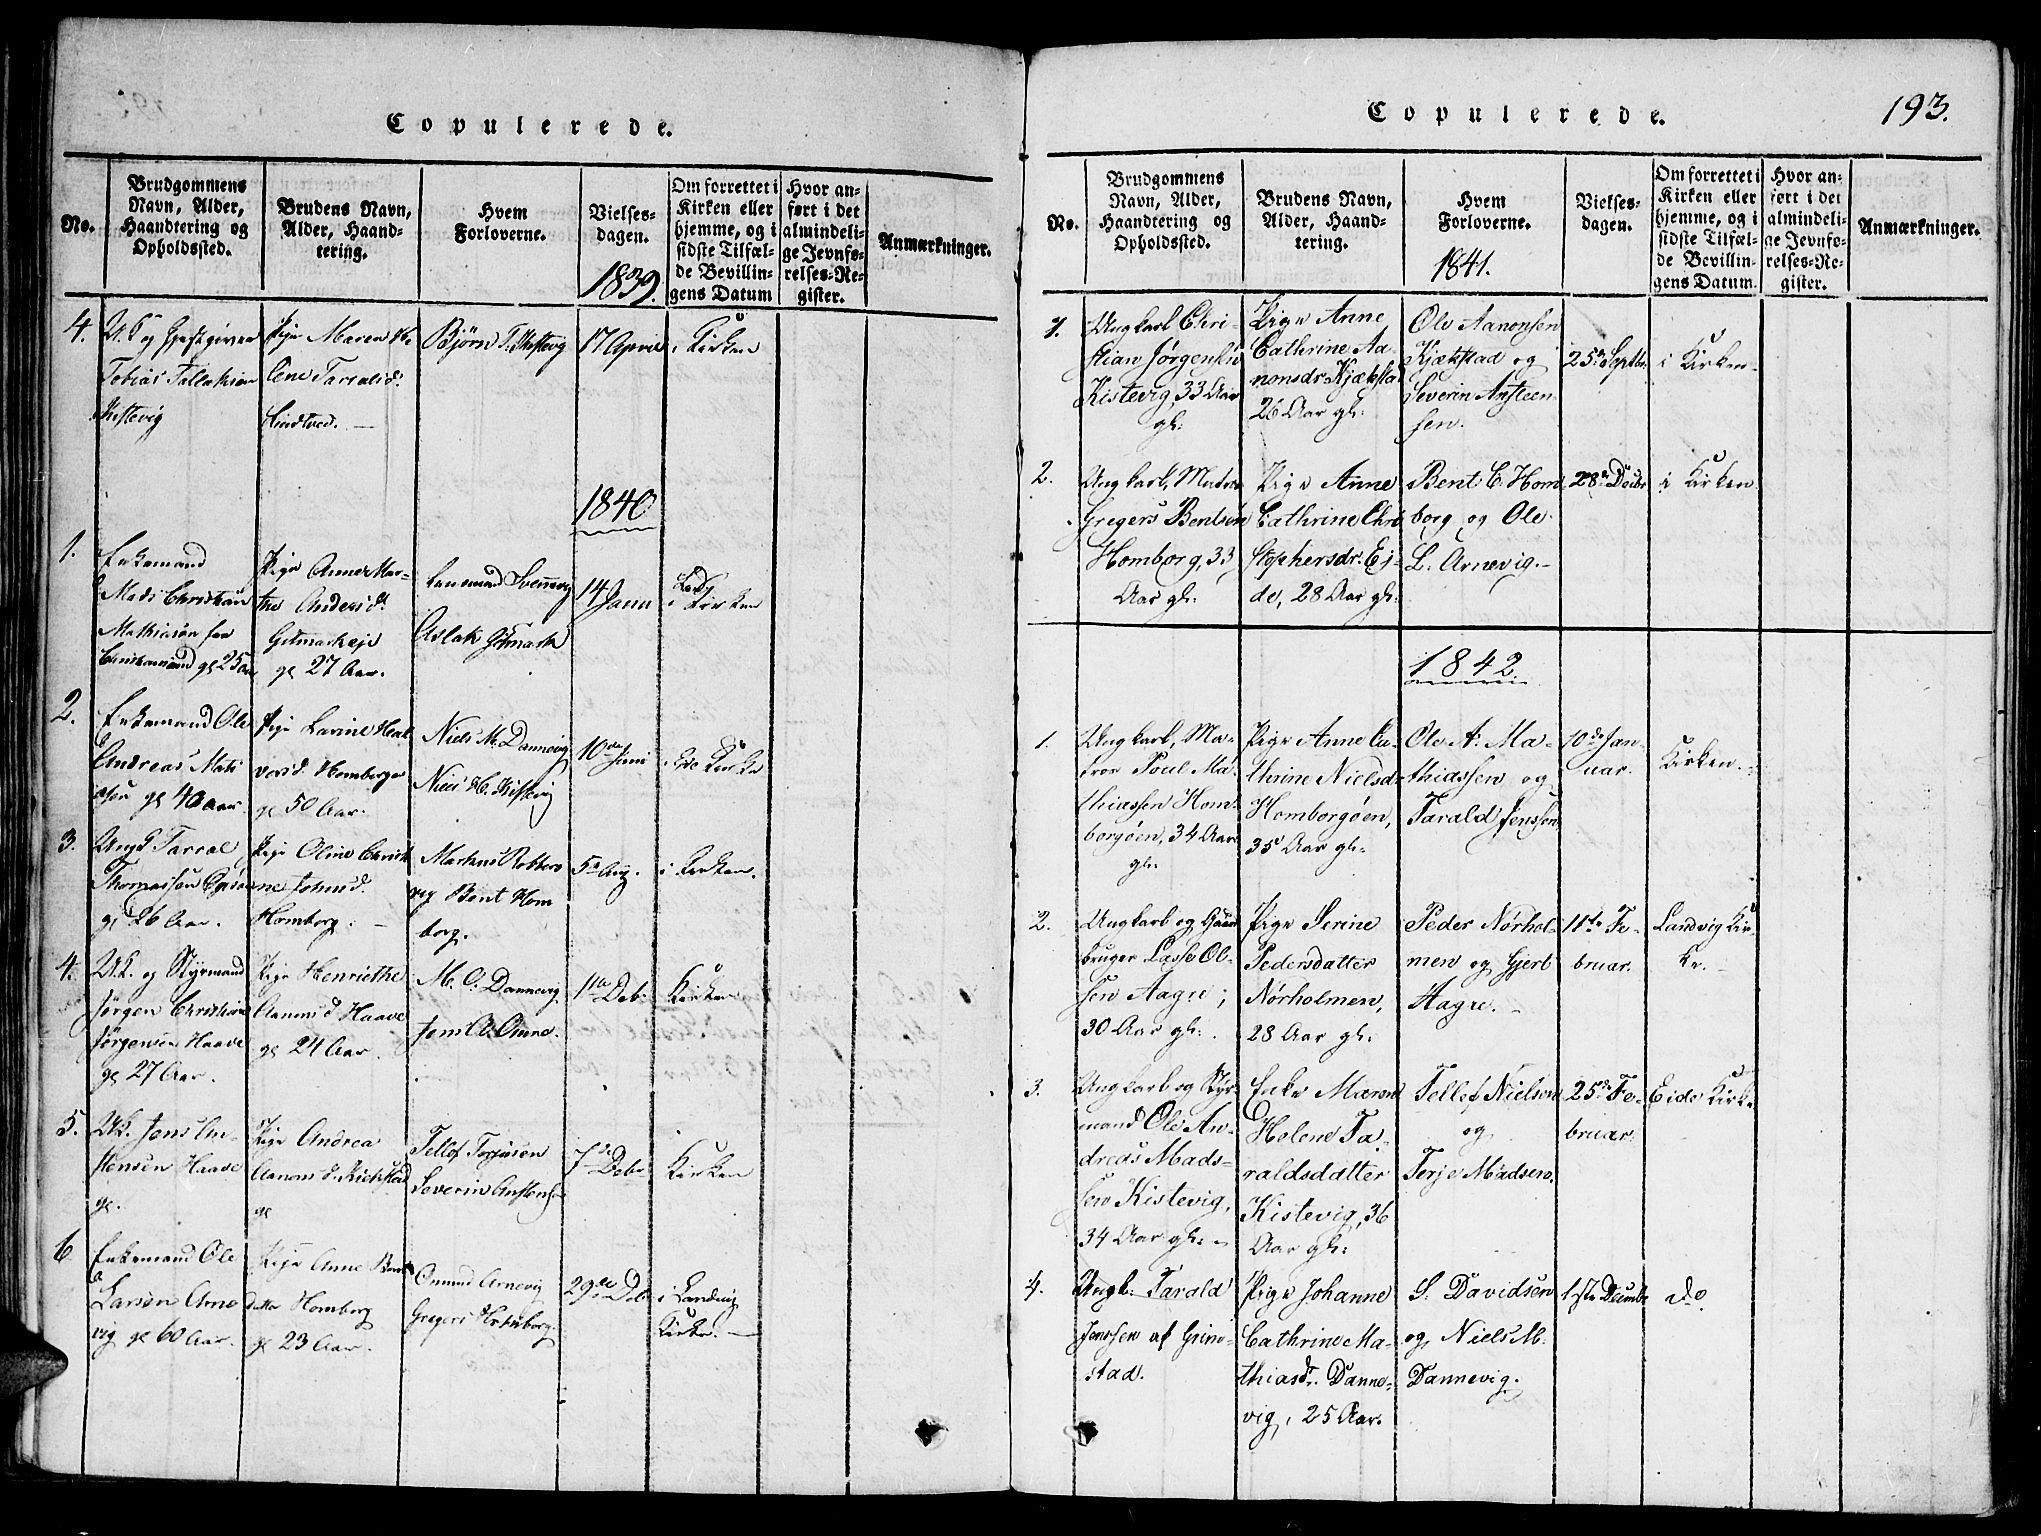 Copulerede.
No.
Brudgommens
Navn, Alder,
Haandtering og
Opholdssted.
Brudens Navn,
Alder, Haand-
tering.
Hvem
Forloverne.
Vielses-
dagen.
1839.
Om forrettet i
Kirken eller
hjemme, og i
sidste Tilfæl-
de Bevillin-
gens Datum
Hvor an-
ført i det
almindeli-
ge Jevnfø-
relses-Re-
gister.
Anmærkninger.
4.
U.K og Gjestgiver
Tobias Tallaksen
Kistevig
Pige Maren He
lene Tarralsd.
Hindtved. —
Bjørn T. Kistevig
17 April
i Kirken
1840
1.
Enkemand
Mads Christian
Mathiasen fra
Christiansand gl 25 Aar
Pige Anne Mar-
the Andersd.
Gitmarkeje
gl 27 Aar.
Lensmand Svennevig
Aslak Gitmark
14 Janu
i Kirken
2.
Enkemand Ole
Andreas Mats
øsen gl 40 Aar.
Pige Lavine Hal
vorsd. Homborgø
gl 50 Aar.
Niels M. Dannevig
Niels H. Kistevig
10de Juni
i Eide Kirke
3.
Ungk Tarral
Thomassen
gl 26 Aar.
Pige Oline Christi
ne Johnsd.
Homborg. —
Markus Robbers
vig Bent Hom
borg.
5te Aug.
i Kirken.
4.
U.K. og Styrmand
Jørgen Christian
Jørgensen Haave
gl 27 Aar.
Pige Henriethe
Aanonsd Haave
gl 24 Aar.
M. C. Dannevig
Jens A. Amne.
11te Deb:
Kirken
5.
UK. Jens An-
stensen Haave
gl.
Pige Andrea
Aanons d. Kiekstad
gl
Tellef Torjusen
Severin Anstensen
7de Debr
Kirken
6
Enkemand Ole
Larsen Arne
vig gl 60 Aar.
Pige Anne Bents
datter Homborg
gl 23 Aar.
Omund Arnevig
Gregers Homborg.
29de Deb:
i Landvig
Kirke. —
Copulerede.
193.
No.
Brudgommens
Navn, Alder,
Haandtering og
Opholdssted.
Brudens Navn,
Alder, Haand-
tering.
Hvem
Forloverne.
1841.
Vielses-
dagen.
Om forrettet i
Kirken eller
hjemme, og i
sidste Tilfæl-
de Bevillin-
gens Datum.
Hvor an-
ført i det
almindeli-
ge Jevnfø-
relses-Re-
gister.
Anmærkninger.
1.
Ungkarl Chri-
stian Jørgensen
Kistevig, 33 Aar
gl:
Pige Anne
Cathrine Aa-
nonsdr. Kjæksta
26 Aar gl:
Ole Aanonsen
Kjækstad og
Severin Ansteen-
sen.
25de Septbr.
i Kirken.
2.
Ungkarl, Matros
Gregers Bentsen
Homborg, 33
Aar gl:
Pige Anne
Cathrine Chri
stophersdr. Ej-
de, 28 Aar gl:
Bent C. Hom
borg og Ole
L. Arnevig. —
28de Decbr
i Kirken
1842.
1.
Ungkarl, Ma-
tros Poul Ma-
thiassen Hom-
borgøen, 34 Aar
gl:
Pige Anne Ca-
thrine Nielsd.
Homborgøen,
35 Aar gl:
Ole A. Ma-
thiassen og
Tarald Jenssen
10de Jan-
uar.
Kirken. —
2.
Ungkarl og Gaard
bruger Lasse Ol-
sen Aagre;
30 Aar gl:
Pige Serine
Pedersdatter
Nørholmen,
28 Aar gl:
Peder Nørhol-
men og Gjert
Aagre. —
11te Fe-
bruar.
Landvig Kir-
ke. —
3.
Ungkarl og Styr-
mand Ole An-
dreas Mads-
sen Kistevig,
34 Aar gl: —
Enke Maren
Helene Ta-
raldsdatter
Kistevig, 36
Aar gl:
Tellef Nielsen
og
Terje Madsen.
25de Fe-
bruar.
Eide Kirke
4.
Ungk: Tarald
Jenssen af Grim-
stad.
Pige Johanne
Cathrine Ma-
thiasdr. Danne-
vig, 25 Aar.
S. Davidsen
og Niels M.
Dannevig.
1ste Decembr
do.